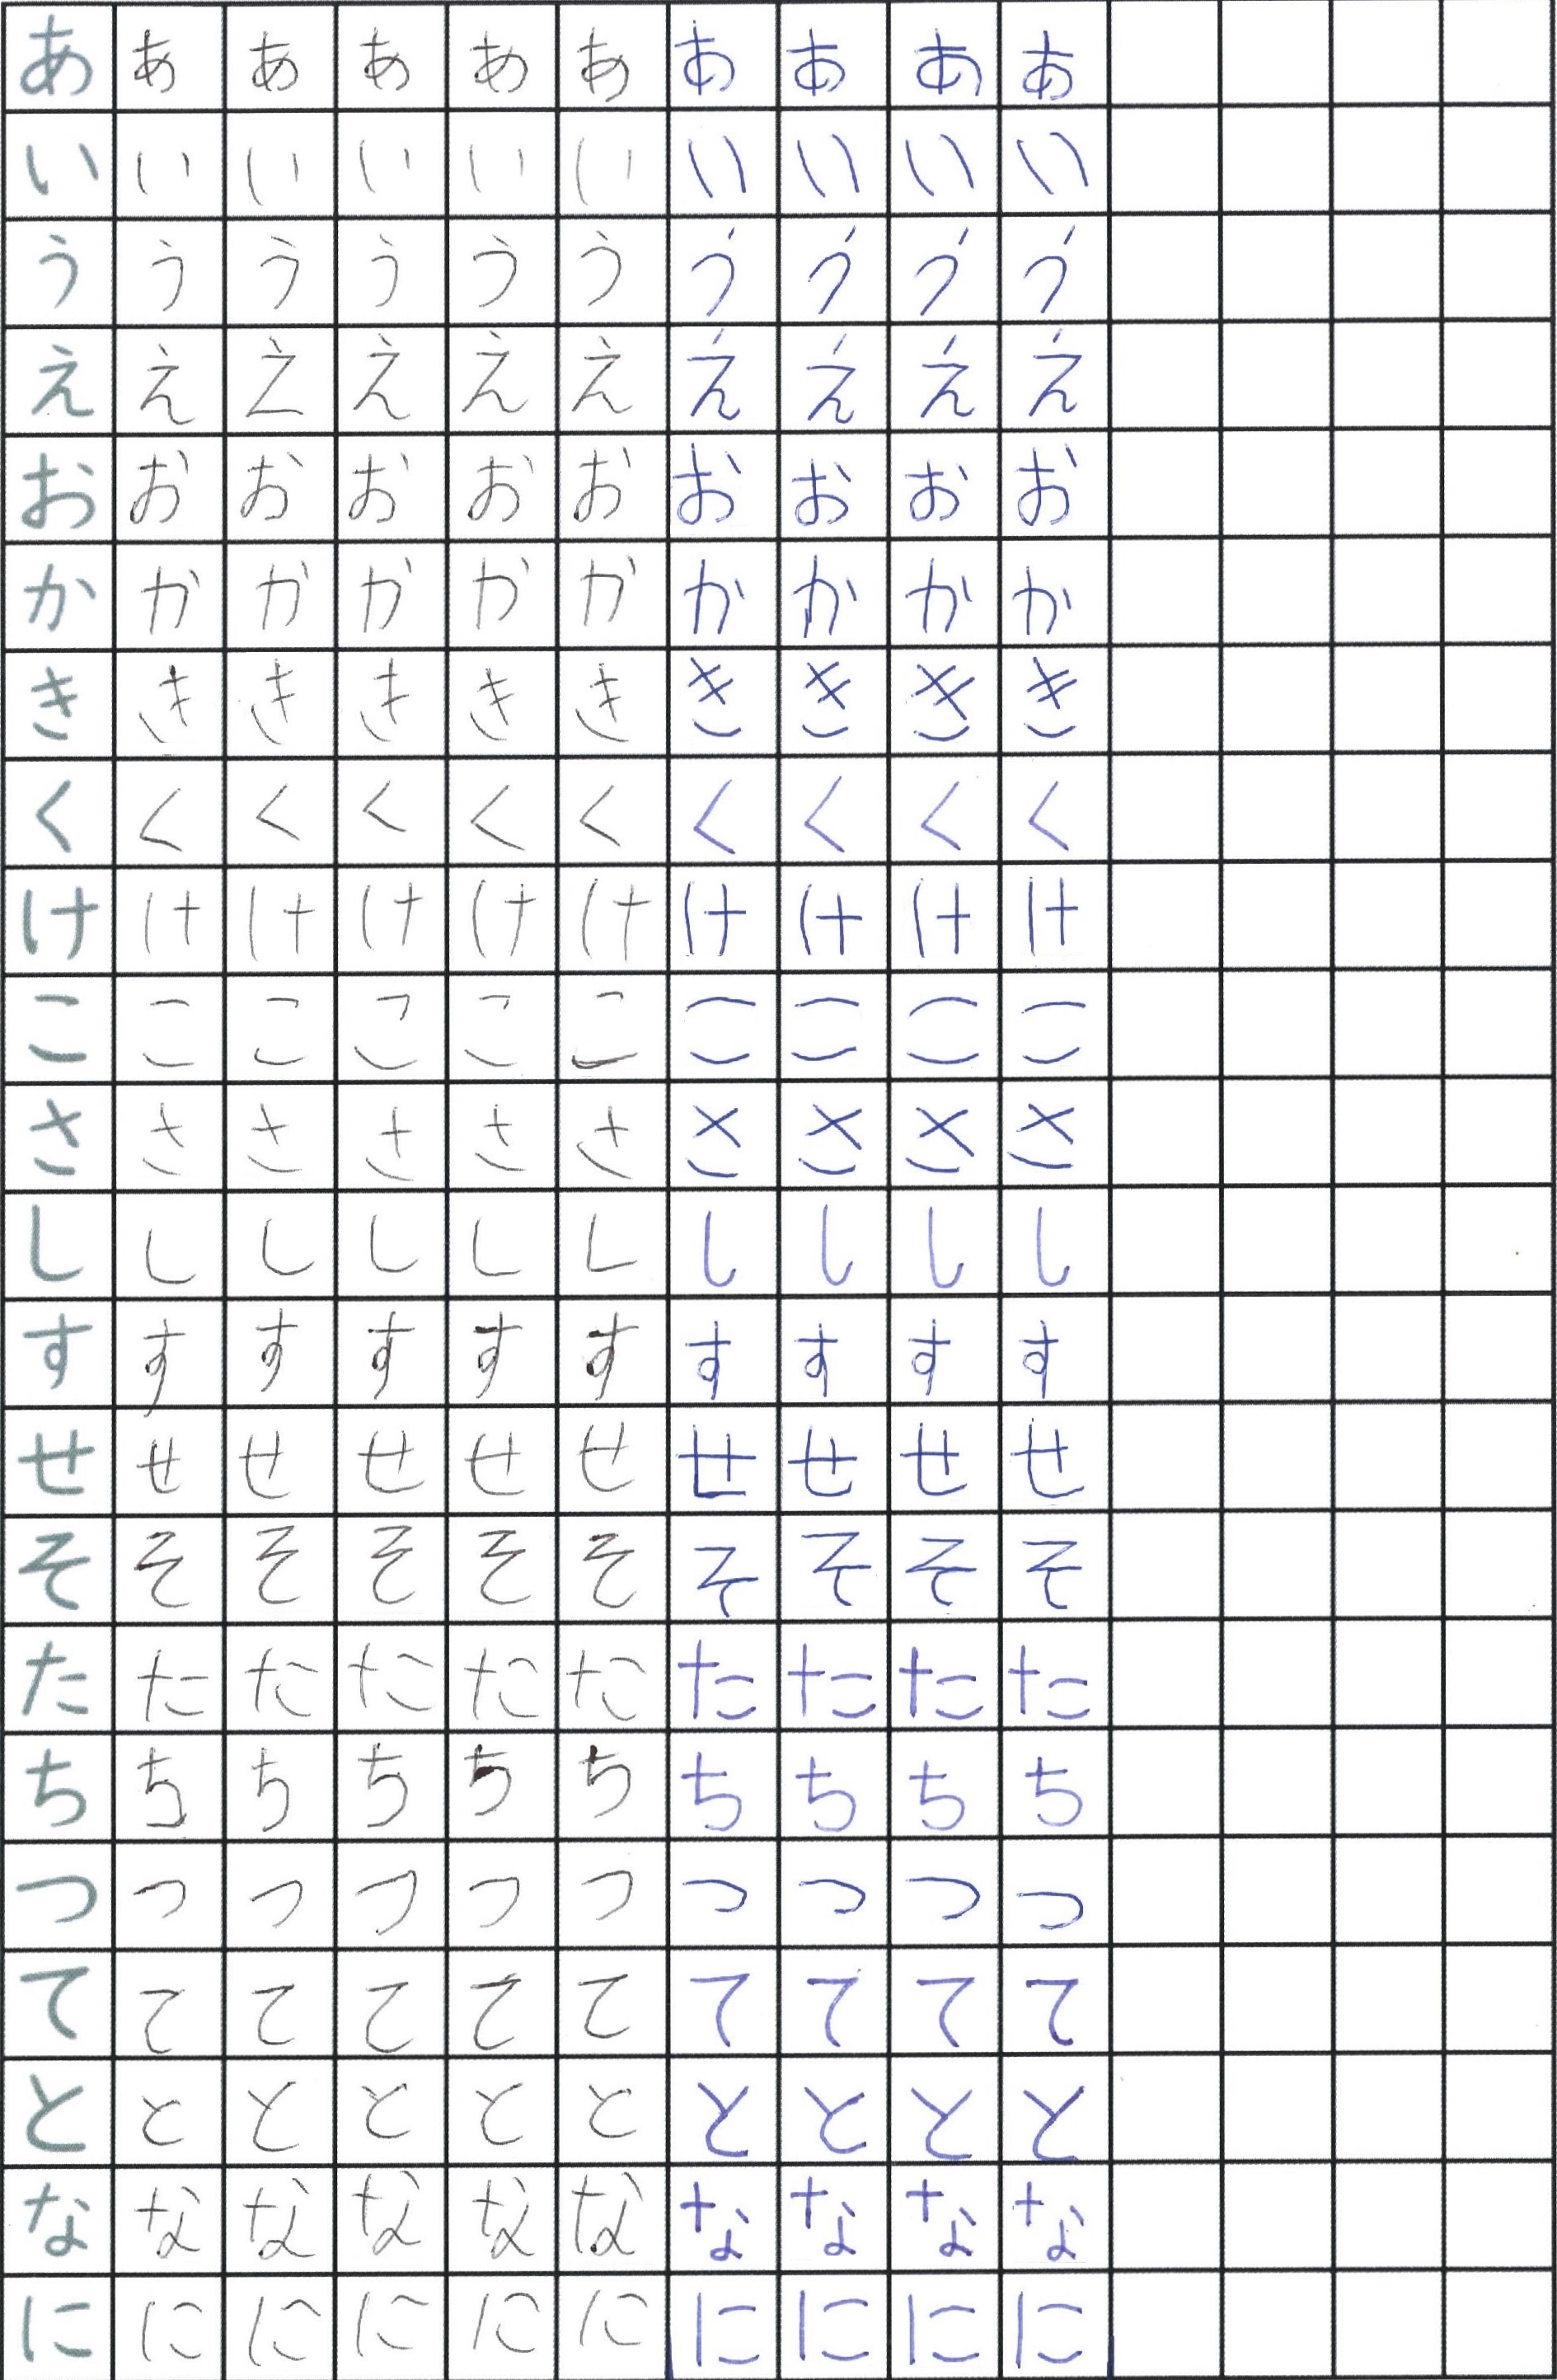 あ あ あ あ あ あ あ あ あ あ
い い い い い い い い い い
う う う う う う う う う う
え え え え え え え え え え
お お お お お お お お お お
か か か か か か か か か か
き き き き き き き き き き
く く く く く く く く く く
け け け け け け け け け け
こ こ こ こ こ こ こ こ こ こ
さ さ さ さ さ さ さ さ さ さ
し し し し し し し し し し
す す す す す す す す す す
せ せ せ せ せ せ せ せ せ せ
そ そ そ そ そ そ そ そ そ そ
た た た た た た た た た た
ち ち ち ち ち ち ち ち ち ち
つ つ つ つ つ つ つ つ つ つ
て て て て て て て て て て
と と と と と と と と と と
な な な な な な な な な な
に に に に に に に に に に